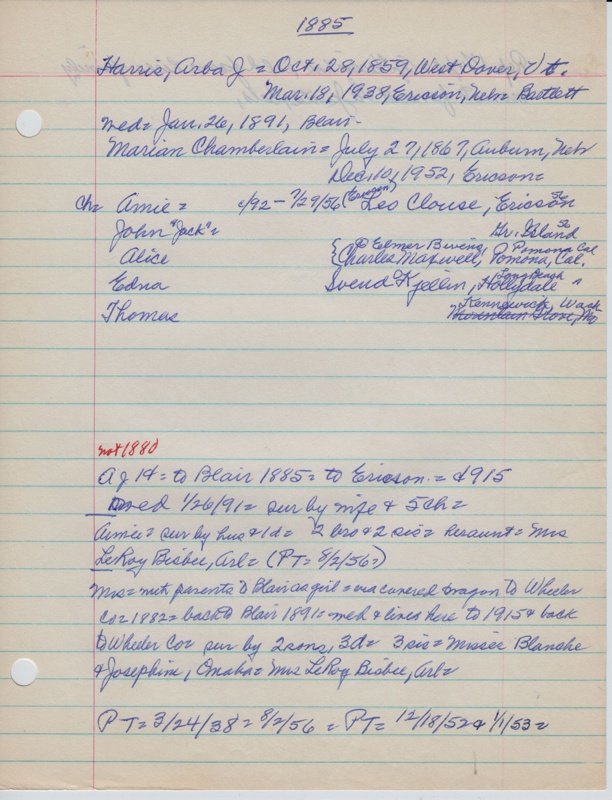 1885
Harris, Arba J = Oct. 28, 1859, West Dover, Vt.
Mar. 18, 1938, Ericson, Nebr = Bartlett
med = Jan. 26, 1891, Blair -
Marian Chamberlain = July 27, 1867, Auburn, Nebr
Dec. 10, 1952, Ericson =
ch = Amie = c/92 - 7/29/56 (Oregon) Leo Clouse, Ericson
John "Jack" = Gr. Island
Elmer Bwing, Pomona Cal
Alice { Charles Maxwell, Pomona, Cal.
Long Beach
Edna Svend Kjellin, Hollydale "
Kennewick, Wash
Thomas Mountain Grove, Mo
not 1880
A J 14 = to Blair 1885 = to Ericson = 1915
med 1/26/91 = sur by wife & 5 ch =
Amie = sur by hus & 1 d = 2 bro & 2 sis = her aunt = Mrs
LeRoy Bisbee, Arl = (PT = 8/2/56 =)
Mrs = with parents to Blair as a girl = via covered wagon to Wheeler
Co = 1882 = back to Blair 1891 = med & lived here to 1915 & back
to Wheeler Co = sur by 2 sons, 3 d = 3 sis = Misses Blanche
& Josephine, Omaha = Mrs LeRoy Bisbee, Arl =
PT = 3/24/38 = 8/2/56 = PT = 12/18/52 & 1/1/53 =